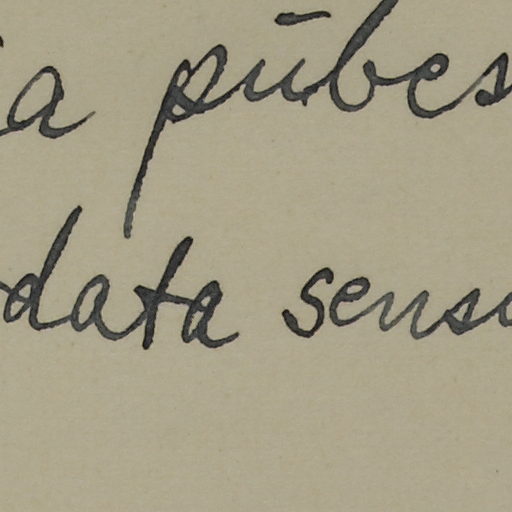 a pūbes
data sensu